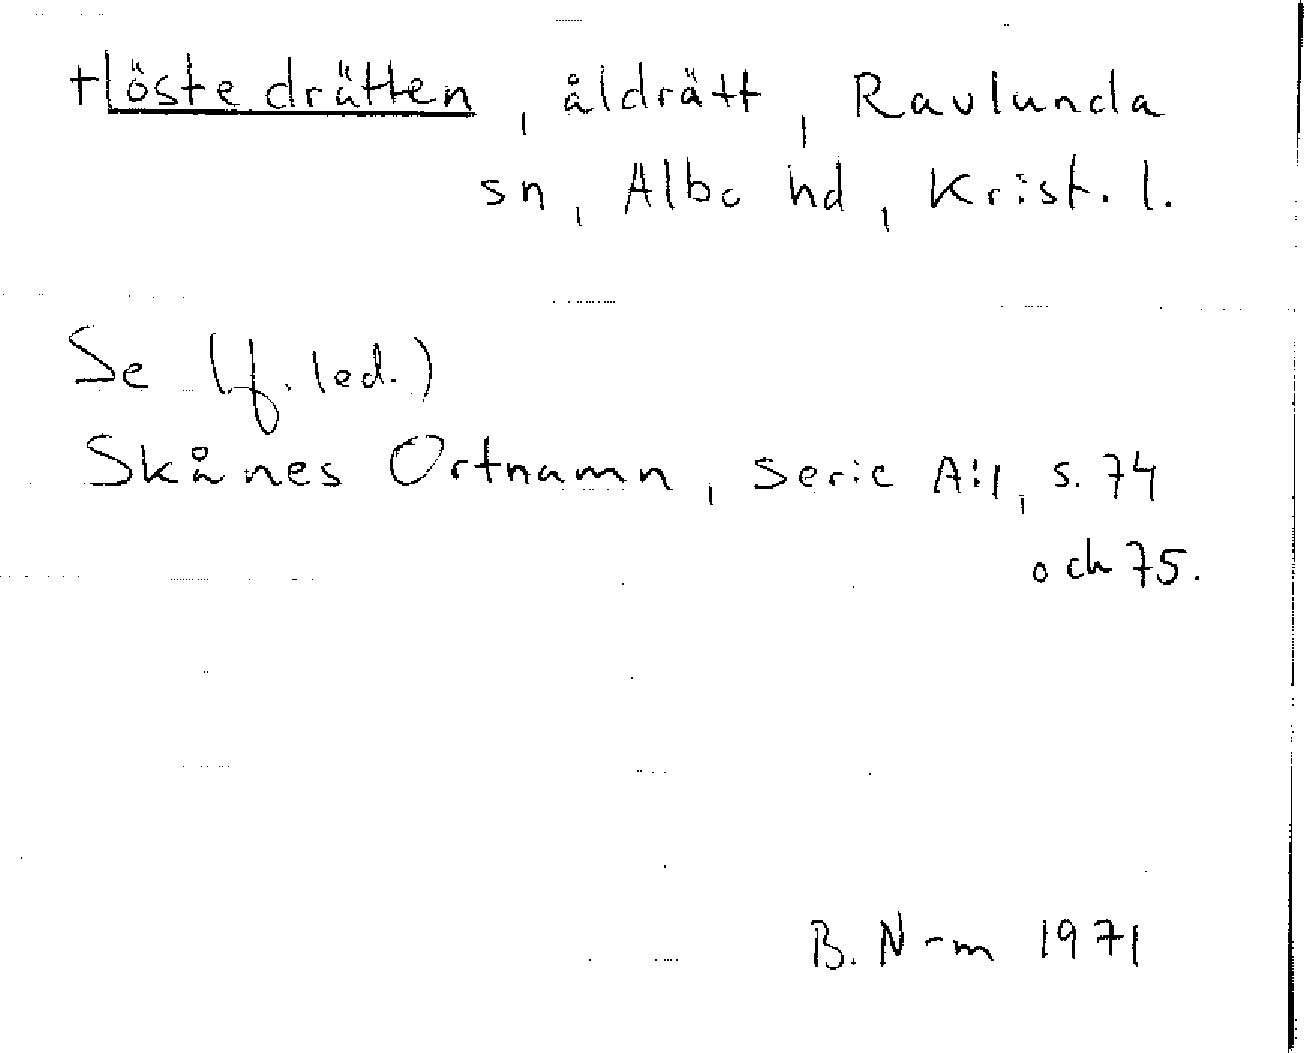 Höstedrätten, åldrätt, Ravlunda
sn, Albo hd, Krist. l.
Se (f. led.)
Skånes Ortnamn, serie A:1, s. 74
och 75.
B. N-m 1971